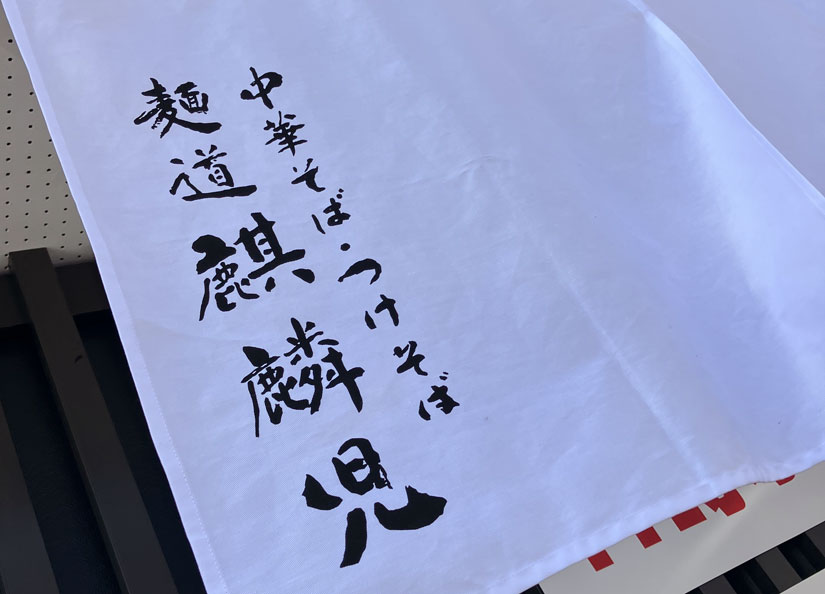 中華そば・つけそば
麺道麒麟児